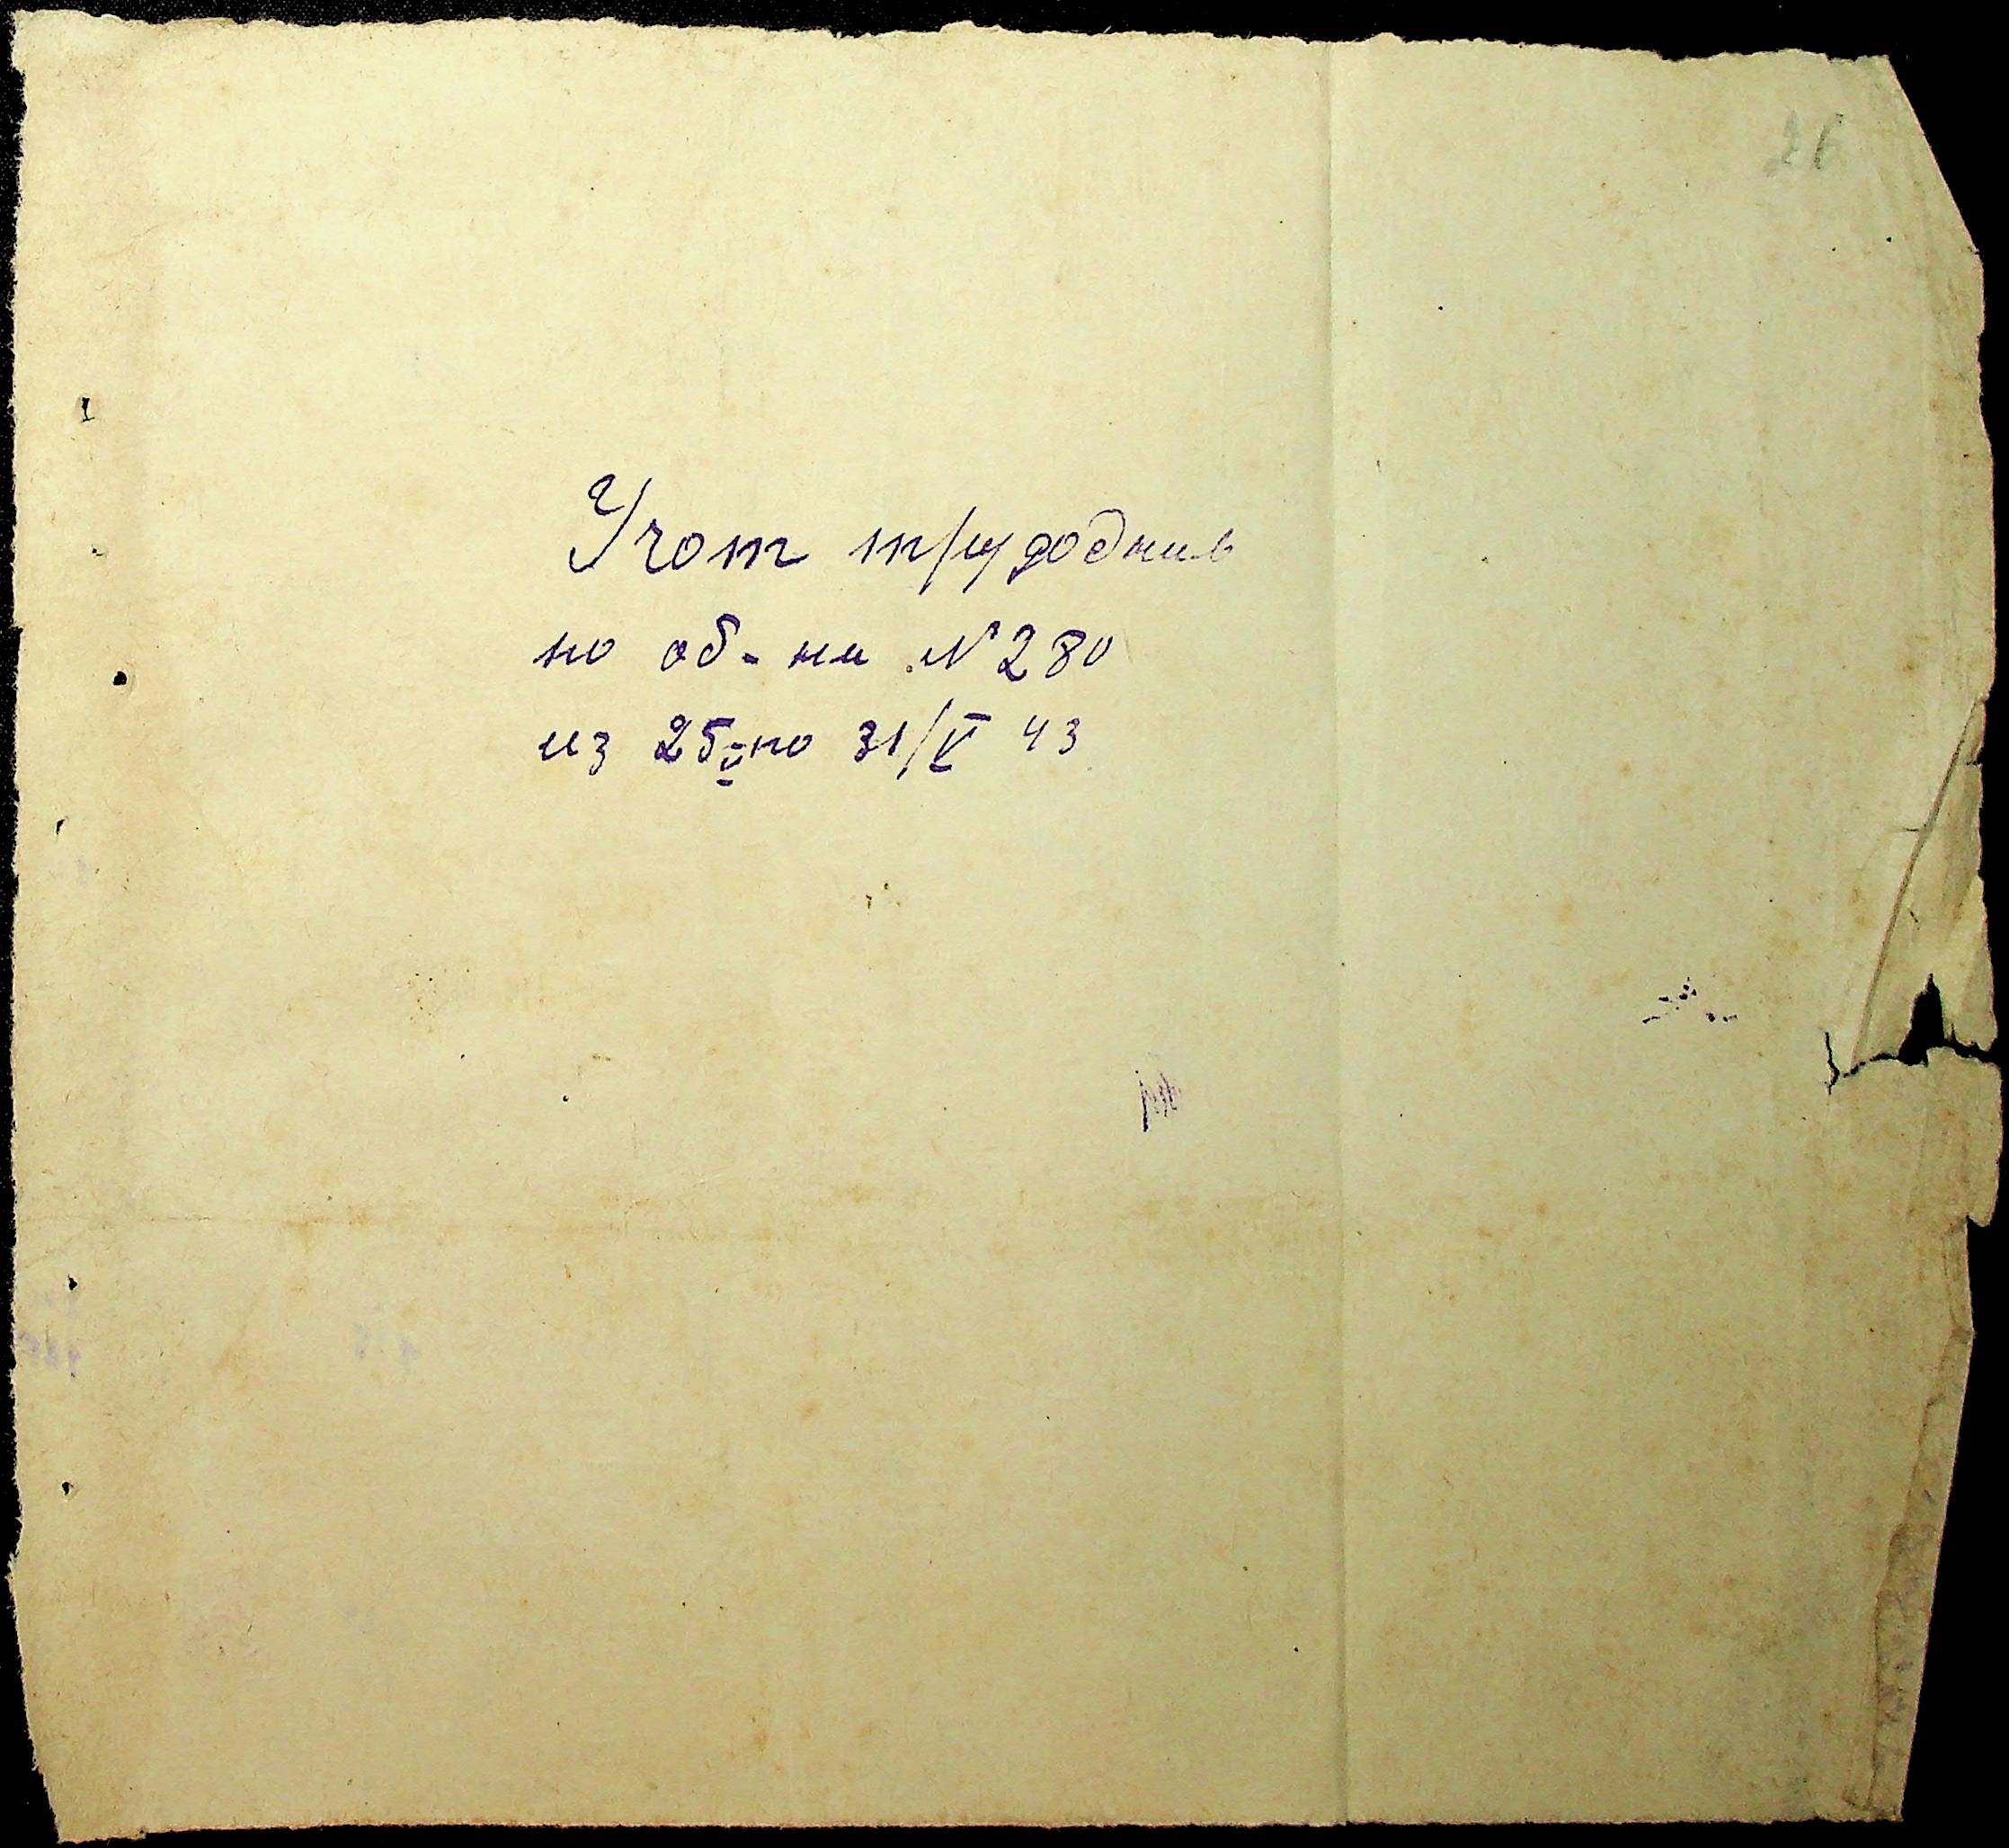 26
Учот трудоднив
по об-ни N 280
из 25-V по 31/V 43